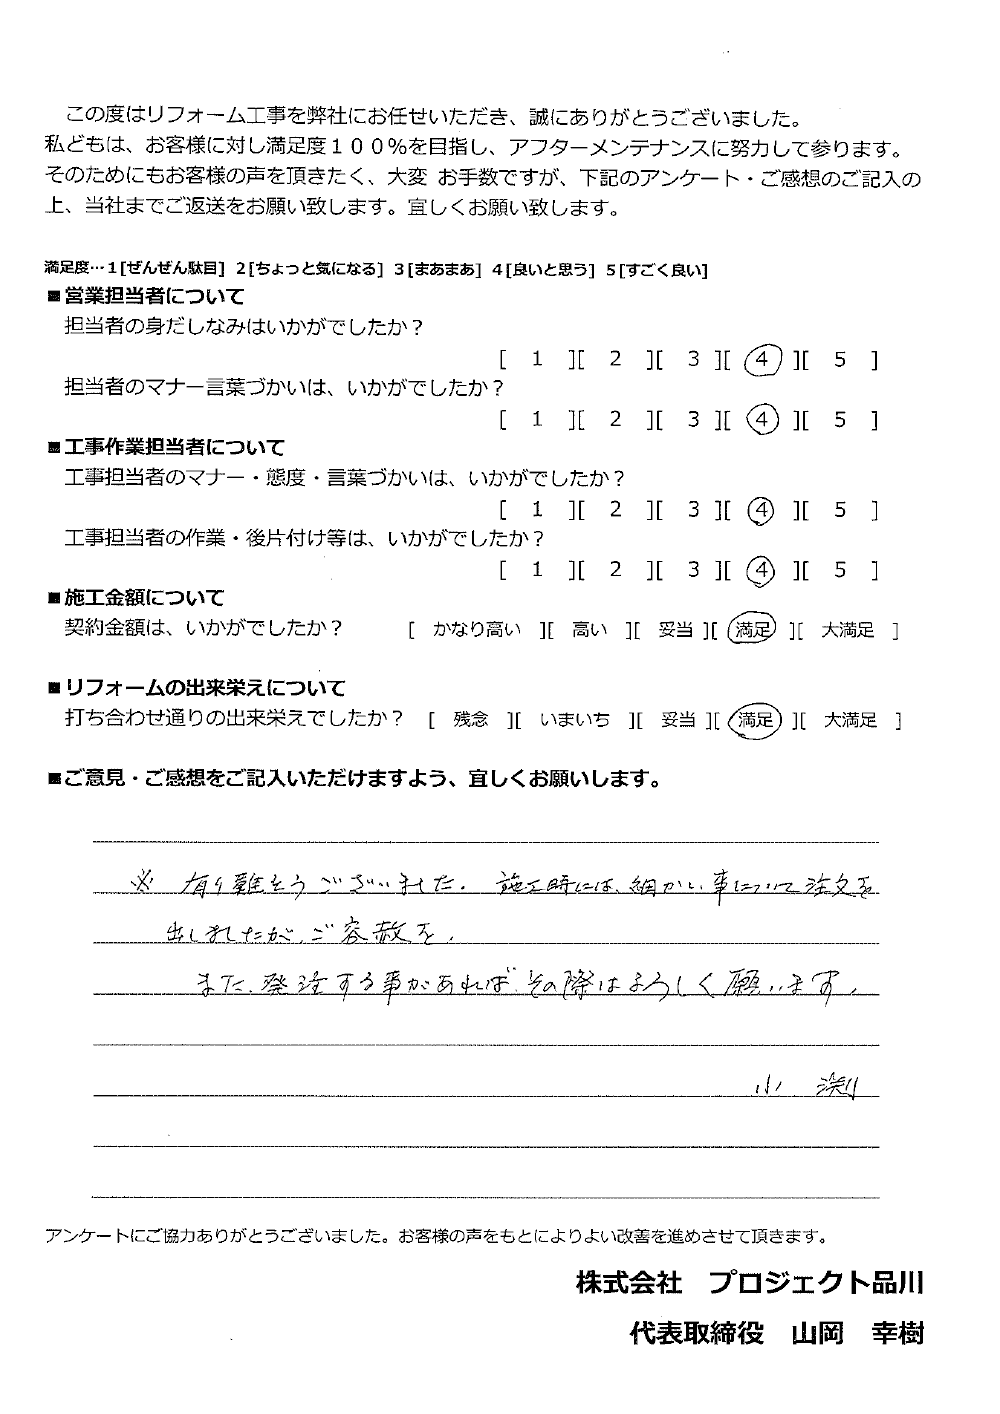 この度はリフォーム工事を弊社にお任せいただき、誠にありがとうございました。
私どもは、お客様に対し満足度１００％を目指し、アフターメンテナンスに努力して参ります。
そのためにもお客様の声を頂きたく、大変 お手数ですが、下記のアンケート・ご感想のご記入の
上、当社までご返送をお願い致します。宜しくお願い致します。
満足度…１[ぜんぜん駄目] ２[ちょっと気になる] ３[まあまあ] ４[良いと思う] ５[すごく良い]
■営業担当者について
担当者の身だしなみはいかがでしたか？
[ 1 ][ 2 ][ 3 ][ 4 ][ 5 ]
担当者のマナー言葉づかいは、いかがでしたか？
[ 1 ][ 2 ][ 3 ][ 4 ][ 5 ]
■工事作業担当者について
工事担当者のマナー・態度・言葉づかいは、いかがでしたか？
[ 1 ][ 2 ][ 3 ][ 4 ][ 5 ]
工事担当者の作業・後片付け等は、いかがでしたか？
[ 1 ][ 2 ][ 3 ][ 4 ][ 5 ]
■施工金額について
契約金額は、いかがでしたか？ [ かなり高い ][ 高い ][ 妥当 ][ 満足 ][ 大満足 ]
■リフォームの出来栄えについて
打ち合わせ通りの出来栄えでしたか？ [ 残念 ][ いまいち ][ 妥当 ][ 満足 ][ 大満足 ]
■ご意見・ご感想をご記入いただけますよう、宜しくお願いします。
※ 有り難とうございました。施工時には、細かい事について注文を
出しましたが、ご容赦を。
また、発注する事があれば、その際はよろしく願います。
小 渕
アンケートにご協力ありがとうございました。お客様の声をもとによりよい改善を進めさせて頂きます。
株式会社 プロジェクト品川
代表取締役 山岡 幸樹